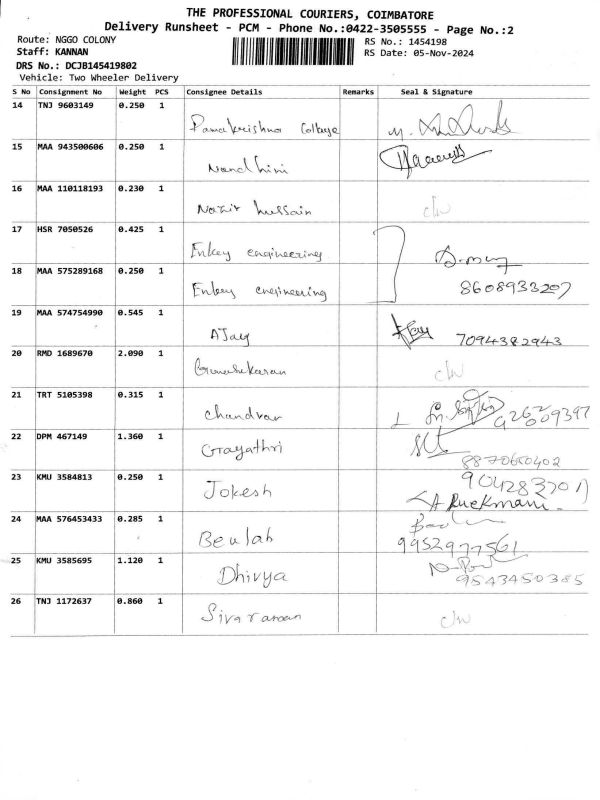 THE PROFESSIONAL COURIERS, COIMBATORE
Delivery Runsheet - PCM - Phone No.:0422-3505555 - Page No.:2
Route: NGGO COLONY
RS No.: 1454198
Staff: KANNAN
RS Date: 05-Nov-2024
DRS No.: DCJB145419802
Vehicle: Two Wheeler Delivery
S No Consignment No Weight PCS Consignee Details Remarks Seal & Signature
14 TNJ 9603149 0.250 1
Ramakrishna College
15 MAA 943500606 0.250 1
Nandhini
16 MAA 110118193 0.230 1
Nazir hussain
17 HSR 7050526 0.425 1
Enkey engineering
18 MAA 575289168 0.250 1
Enkey engineering 8608933207
19 MAA 574754990 0.545 1
AJay 7094382943
20 RMD 1689670 2.090 1
Gunasekaran
21 TRT 5105398 0.315 1
chandran
22 DPM 467149 1.360 1
Gayathri
8870650402
23 KMU 3584813 0.250 1
Jokesh
A Ruckmani.
24 MAA 576453433 0.285 1
Beulah 9952977561
25 KMU 3585695 1.120 1
Dhivya 9543450385
26 TNJ 1172637 0.860 1
Sivaraman